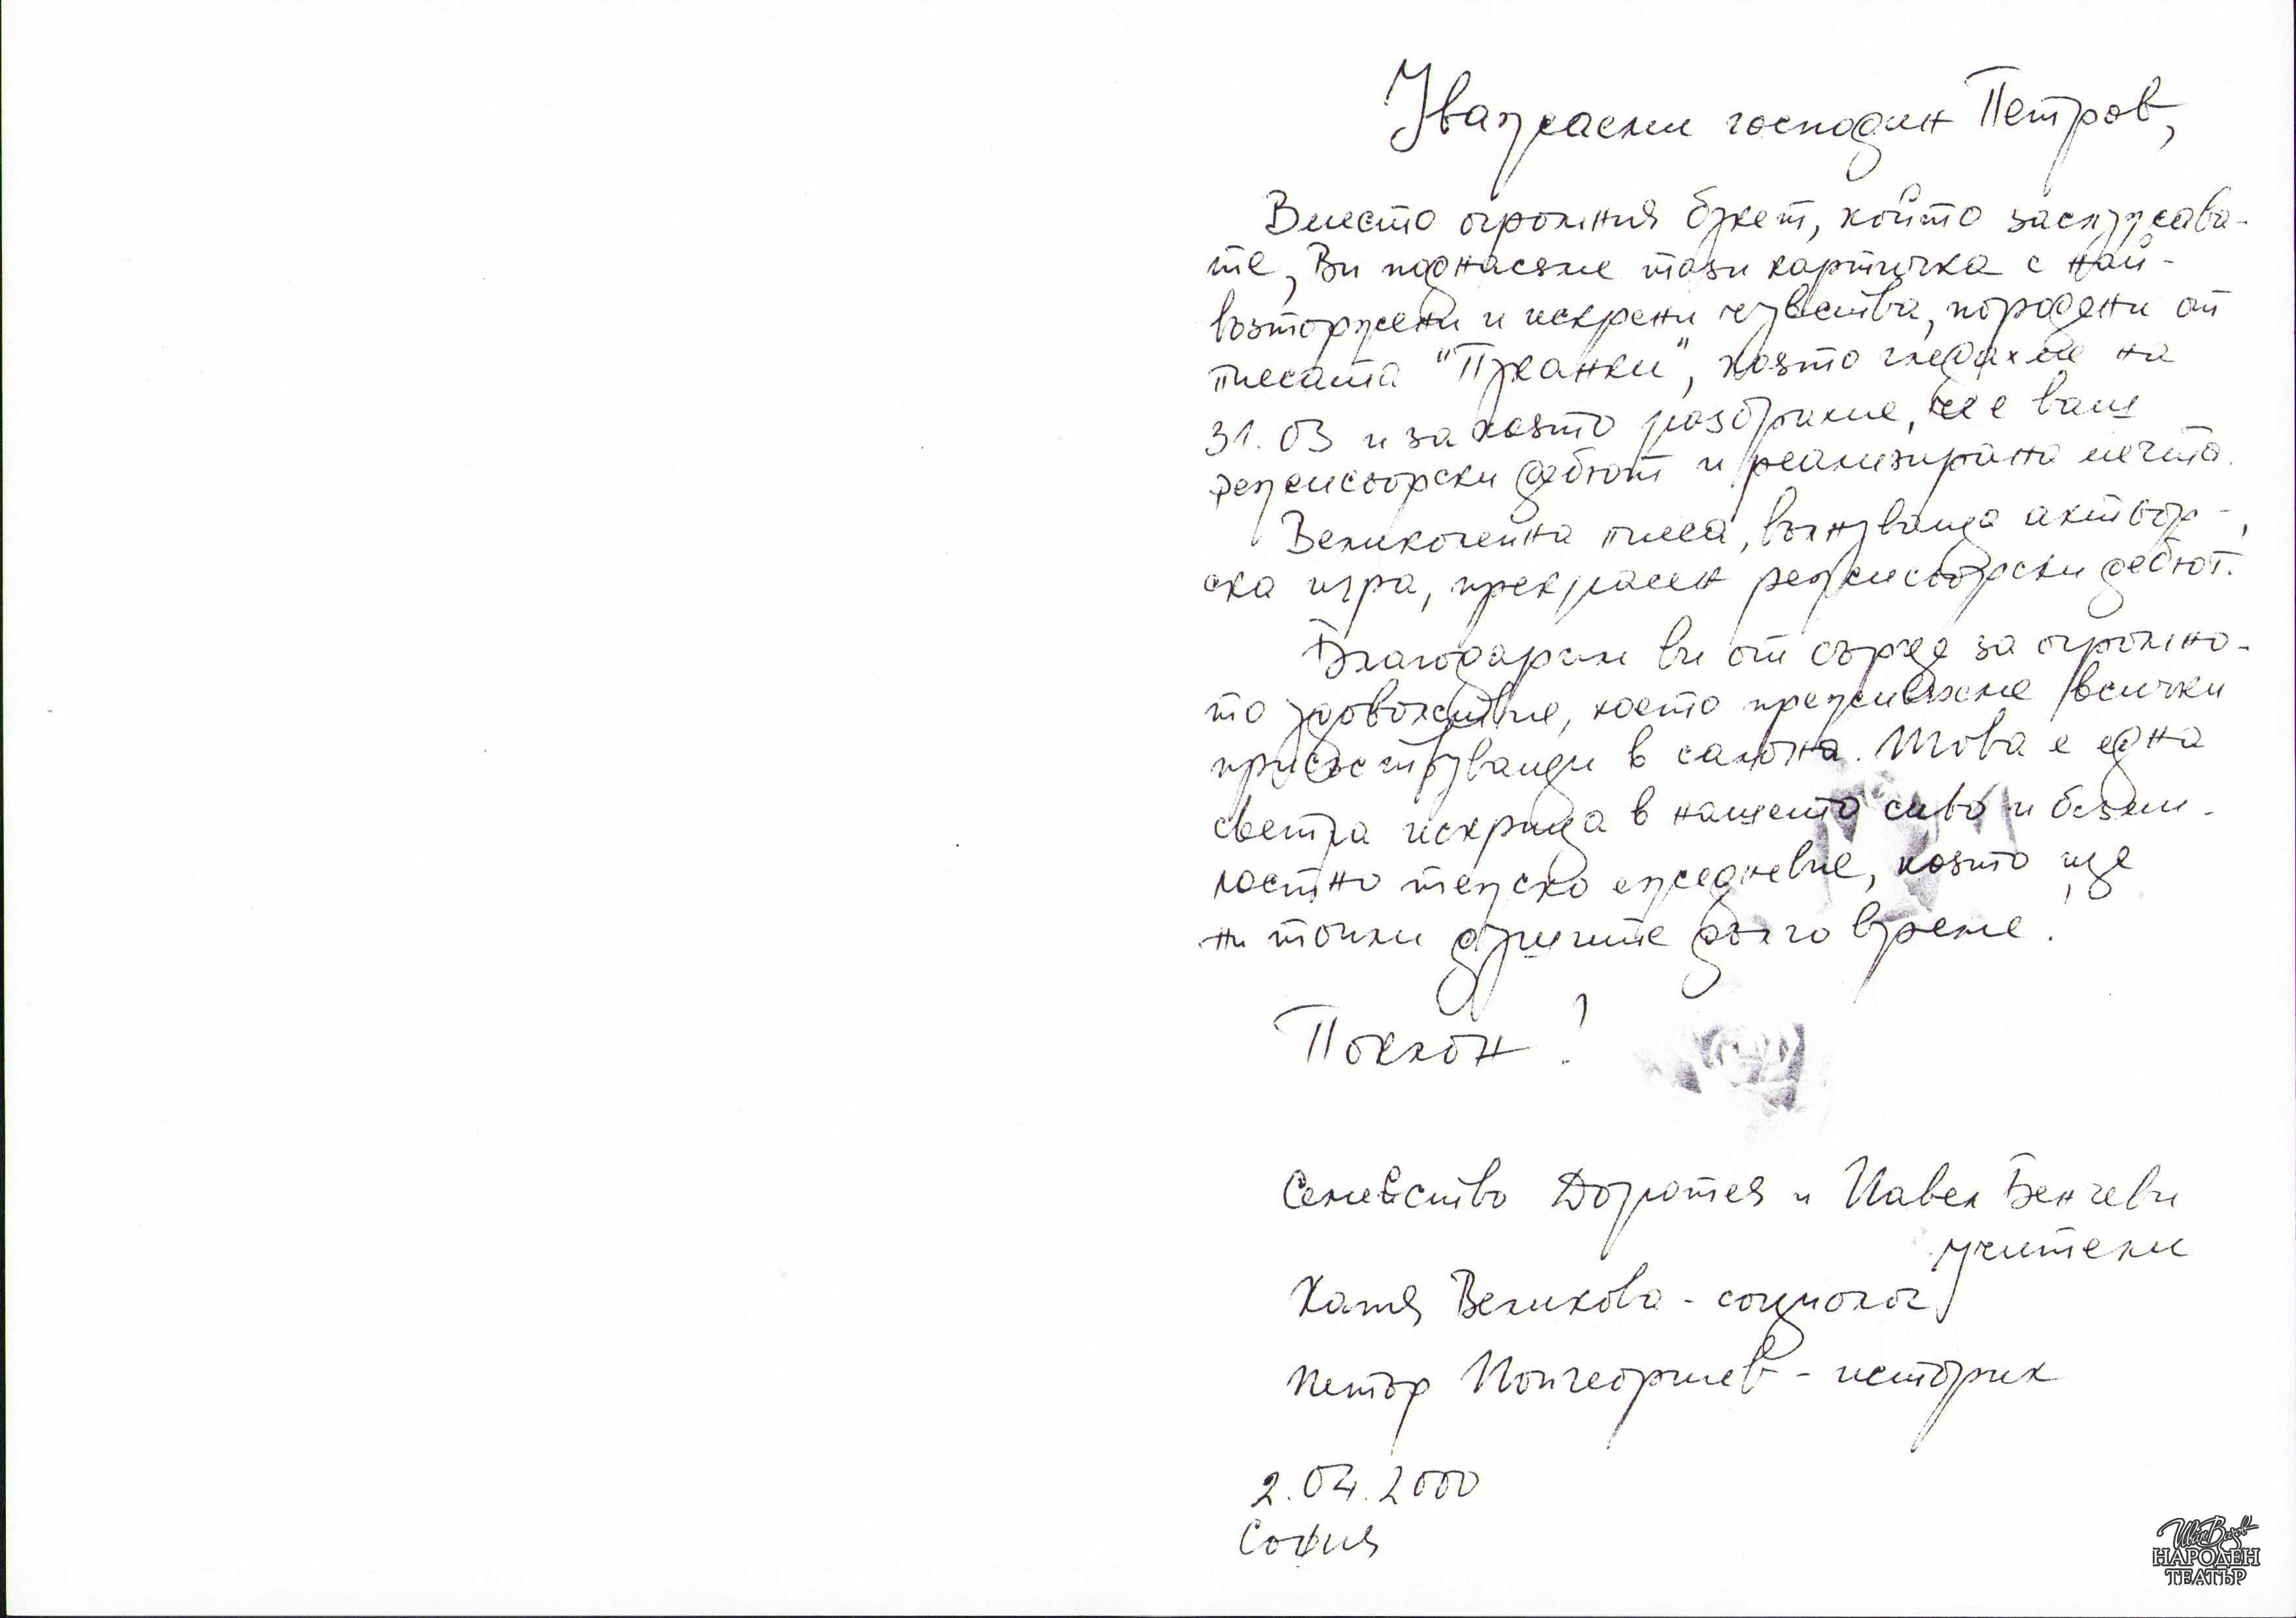 Уважаеми господин Петров,
Вместо огромния букет, който заслужава-
те, Ви поднасяме тази картичка с най-
възторжени и искрени чувства, породени от
пиесата "Пуканки", която гледахме на
31.03 и за която разбрахме, че е ваш
режисьорски дебют и реализирана мечта.
Великолепна пиеса, вълнуваща актьор-
ска игра, прекрасен режисьорски дебют.
Благодарим ви от сърце за огромно-
то удоволствие, което преживяхме всички
присъствуващи в салона. Това е една
светла искрица в нашето сиво и безми-
лостно тежко ежедневие, която ще
ни топли душите дълго време!
Поклон!
Семейство Доротея и Павел Бенчеви
учители
Катя Великова - социолог
Петър Попгеоргиев - историк
2.04.2000
София
Иван Вазов
НАРОДЕН
ТЕАТЪР